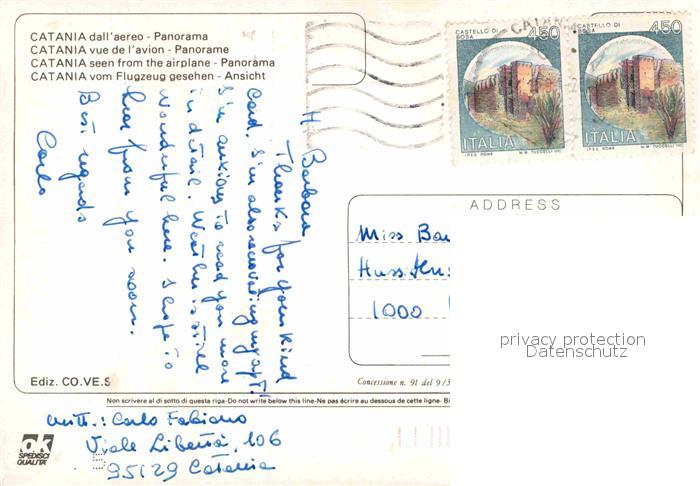 CATANIA dall'aereo - Panorama
CATANIA vue de l'avion - Panorame
CATANIA seen from the airplane - Panorama
CATANIA vom Flugzeug gesehen - Ansicht
CATANIA
CASTELLO DI ROSA 450
ITALIA
I.P.Z.S. ROMA M.M. TUCCELLI
CASTELLO DI ROSA 450
ITALIA
I.P.Z.S. ROMA M.M. TUCCELLI
Hi Barbara
Thanks for your kind
card. I'm also renovating my apt.!
I'm anxious to read you more
in detail. Weather is still
wonderful here. I hope to
hear from you soon.
Best regards
Carlo
ADDRESS
Miss Ba
Huss
1000
privacy protection
Datenschutz
Ediz. CO.VE.S
Concessione n. 91 del 9/3
Non scrivere al di sotto di questa riga-Do not write below this line-Ne pas écrire au dessous de cette ligne- Bi
mitt.: Carlo Fabiano
Viale Libertà, 106
95129 Catania
ok
SPEDISCI
QUALITA'